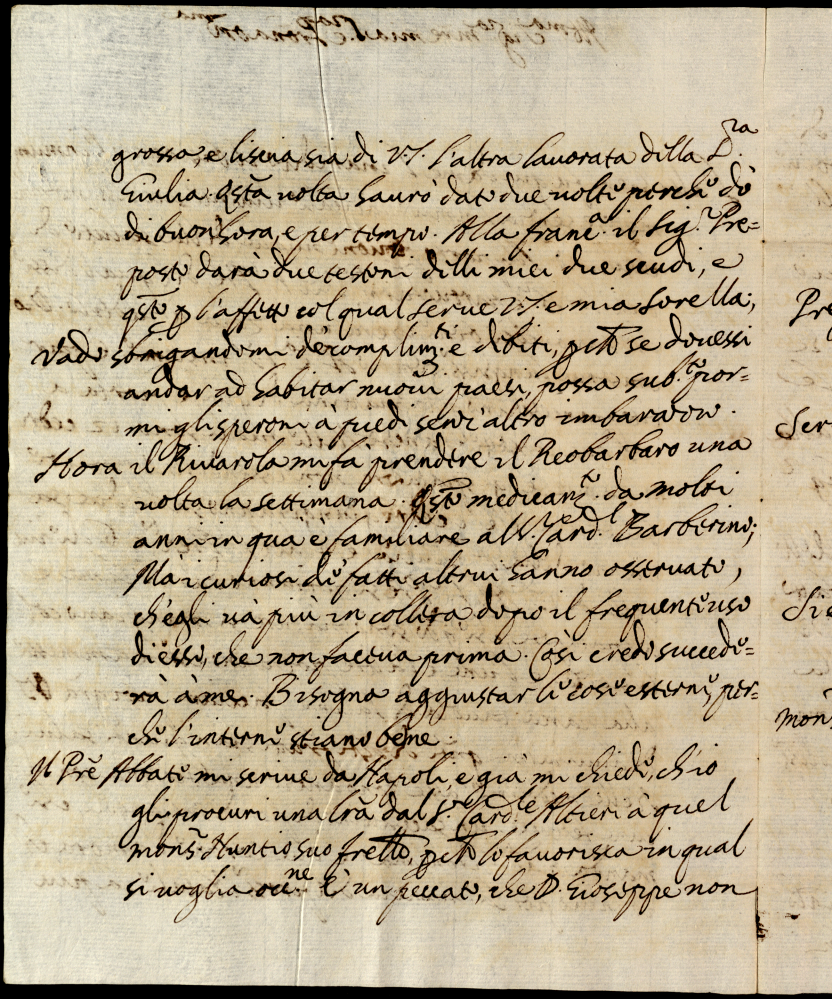 grossa, e liscia sia di V.S. l'altra lavorata della D.ra
Giulia. Q.sta volta havrò dato due volte perche dò
di buon'hora, e per tempo. Alla Franc.a il Sig.r Pre=
posto darà due testoni delli miei due scudi, e
q.sto p l'affetto col qual serve V.S. e mia sorella;
Vado sbrigandomi de complim.ti e debiti, p.chè se dovessi
andar ad habitar nuovi paesi, possa sub.to por=
mi gli speroni à piedi senz'altro imbarazzo.
Hora il Rivarola mi fà prendere il Reobarbaro una
volta la settimana. Q.sto medicam.to da molti
anni in quà è familiare al S.r Card.l Barberino;
Mà i curiosi de' fatti altrui hanno osservato,
ch'egli và più in collera dopo il frequente uso
di esso, che non faceva prima. Così credo succede=
rà à me. Bisogna aggiustar le cose esterne, per=
che l'interne stiano bene.
Il Prē Abbate mi scrive da Napoli, e già mi chiede, ch'io
gli procuri una lr̄a dal S.r Card.le Altieri à quel
mons.r Nuntio suo frello, p.chè lo favorisca in qual
si voglia occ.ne È un peccato, che D. Gioseppe non
Pre
Ser
Sie
mons